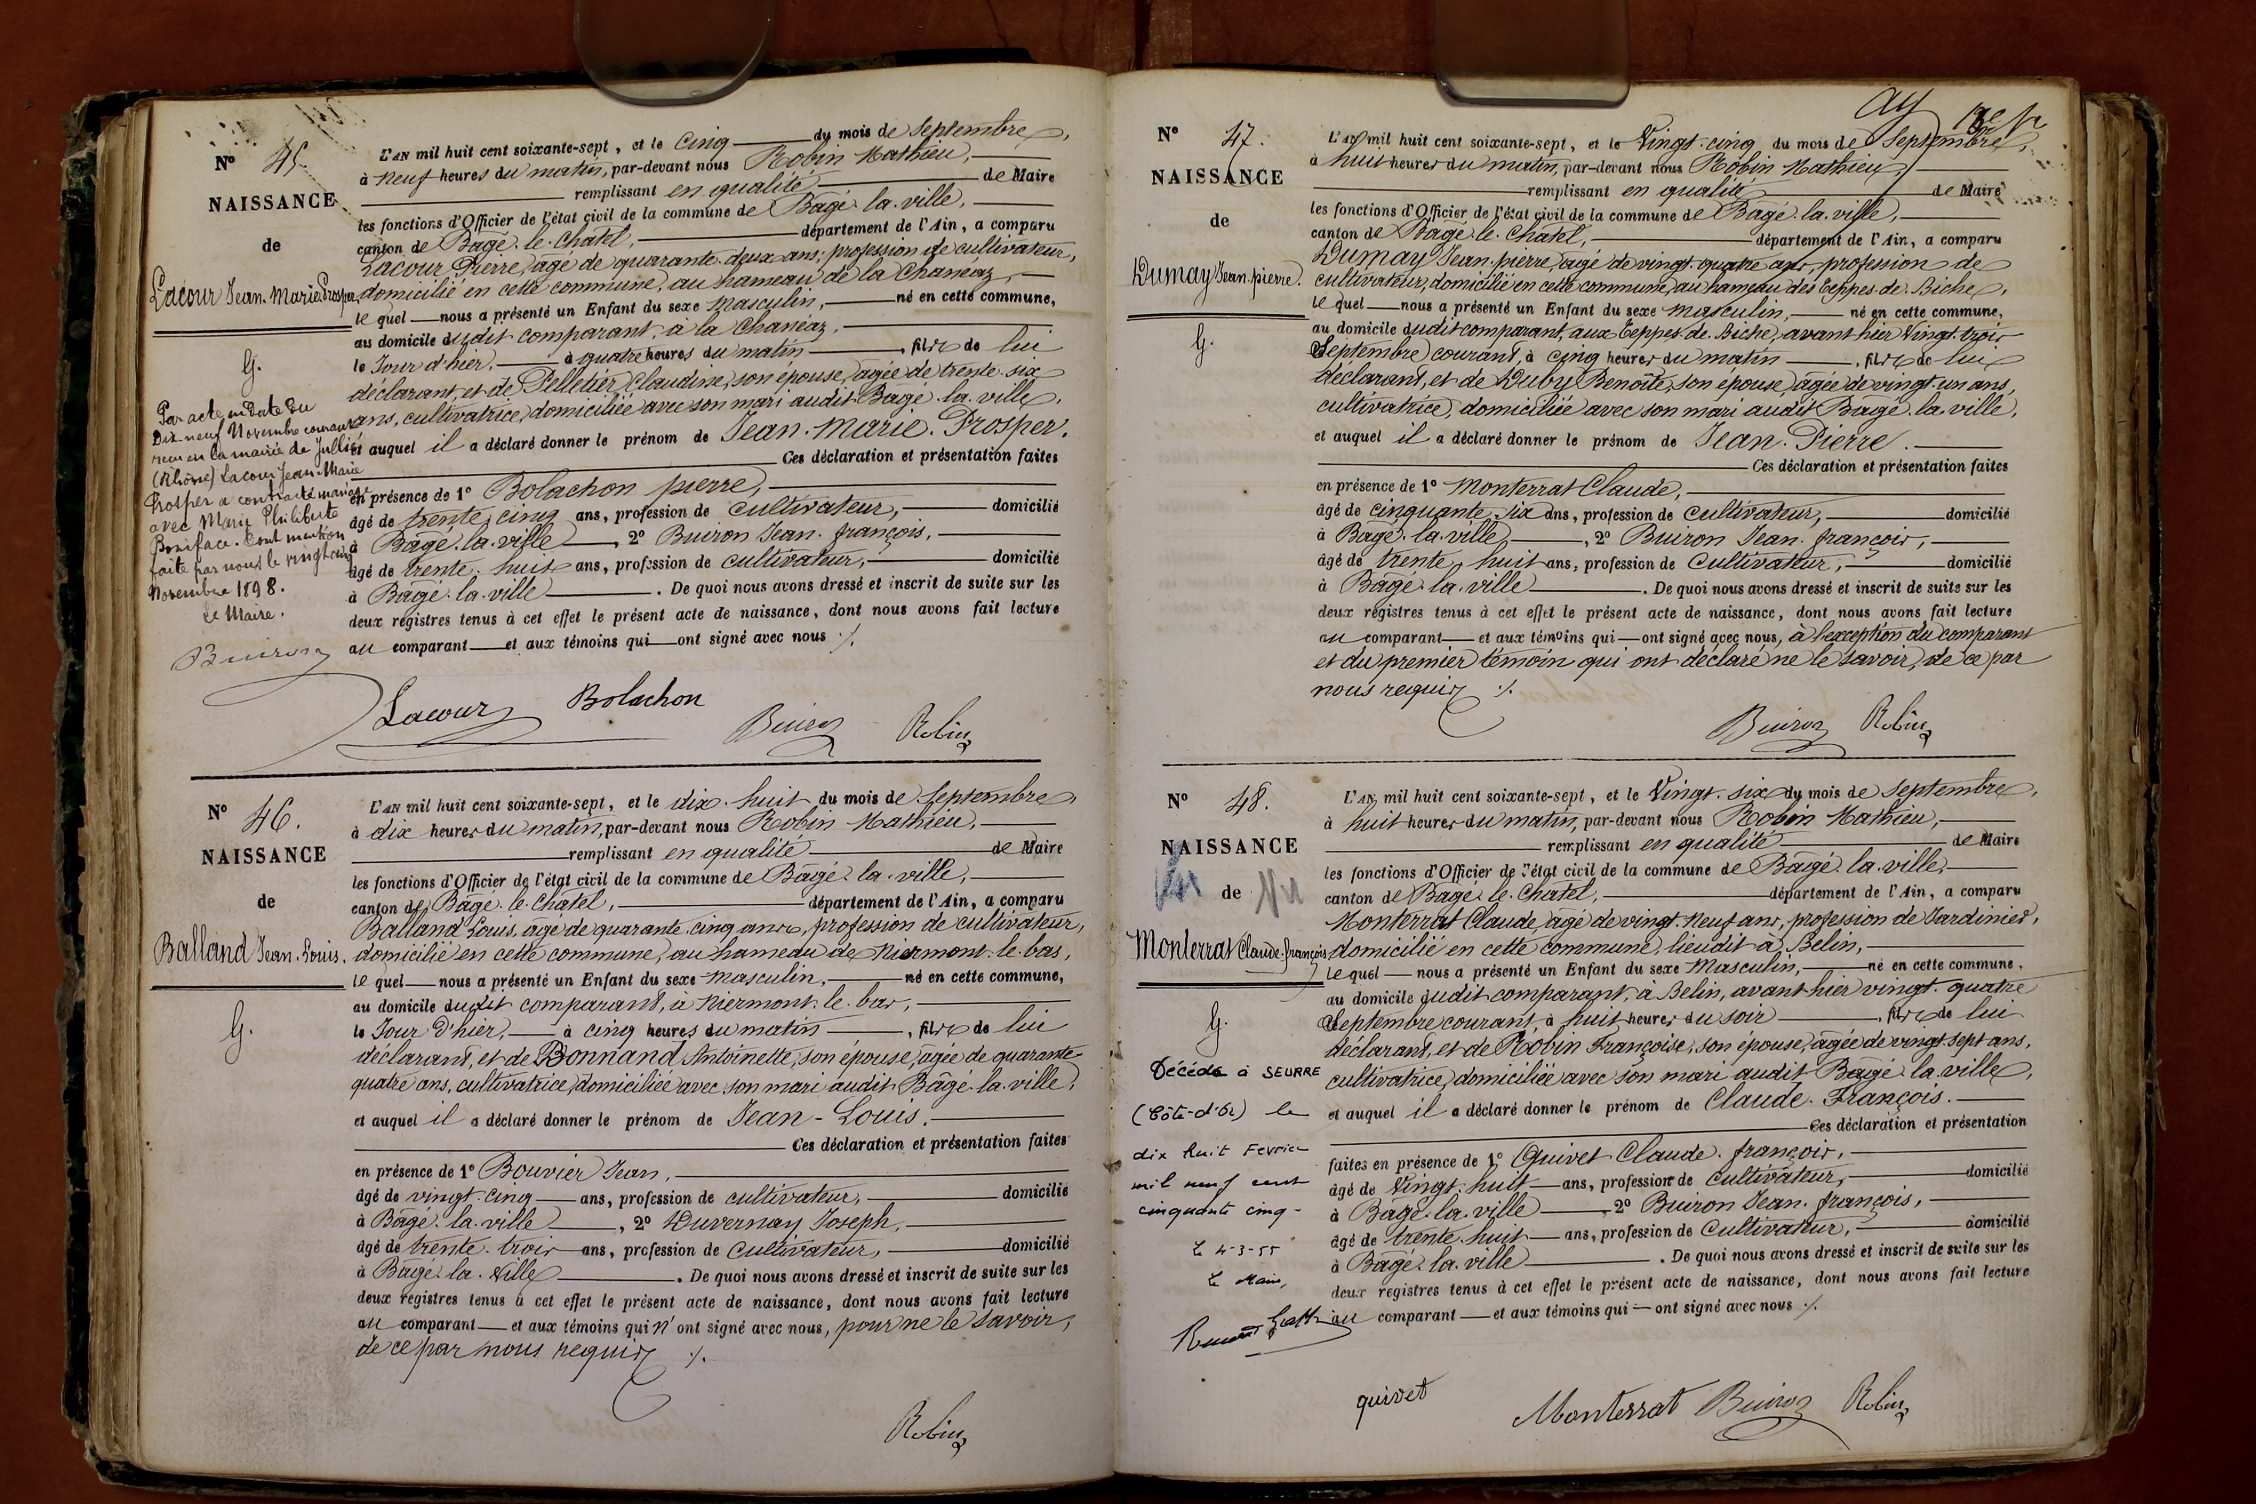 N° 45.
NAISSANCE
de
Lacour Jean-Marie-Prosper
G.
Par acte en date du
Dix neuf Novembre courant
reçu en la mairie de Jullié
(Rhône) Lacour Jean-Marie
Prosper a contracté mariage
avec Marie Philiberte
Boniface. Dont mention
faite par nous le vingt cinq
Novembre 1898.
Le Maire.
Buiron
L'AN mil huit cent soixante-sept, et le Cinq du mois de Septembre,
à neuf heures du matin, par-devant nous Robin Mathieu,
remplissant en qualité de Maire
les fonctions d'Officier de l'état civil de la commune de Bâgé-la-ville,
canton de Bâgé-le-Chatel, département de l'Ain, a comparu
Lacour Pierre, âgé de quarante-deux ans, profession de cultivateur,
domicilié en cette commune, au hameau de la Chanéaz,
le quel nous a présenté un Enfant du sexe masculin, né en cette commune,
au domicile dudit comparant, à la Chanéaz,
le Jour d'hier, à quatre heures du matin, fils de lui
déclarant, et de Pelletier Claudine, son épouse, âgée de trente-six
ans, cultivatrice, domiciliée avec son mari audit Bâgé-la-ville,
et auquel il a déclaré donner le prénom de Jean-Marie-Prosper.
Ces déclaration et présentation faites
en présence de 1° Bolachon pierre,
âgé de trente-cinq ans, profession de cultivateur, domicilié
à Bâgé-la-ville, 2° Buiron Jean-françois,
âgé de trente-huit ans, profession de cultivateur, domicilié
à Bâgé-la-ville. De quoi nous avons dressé et inscrit de suite sur les
deux registres tenus à cet effet le présent acte de naissance, dont nous avons fait lecture
au comparant et aux témoins qui ont signé avec nous ./.
Lacour Bolachon Buiron Robin
N° 46.
NAISSANCE
de
Balland Jean-Louis.
G.
L'AN mil huit cent soixante-sept, et le dix-huit du mois de Septembre,
à dix heures du matin, par-devant nous Robin Mathieu,
remplissant en qualité de Maire
les fonctions d'Officier de l'état civil de la commune de Bâgé-la-ville,
canton de Bâgé-le-Chatel, département de l'Ain, a comparu
Balland Louis, âgé de quarante-cinq ans, profession de cultivateur,
domicilié en cette commune, au hameau de Niermont-le-bas,
le quel nous a présenté un Enfant du sexe masculin, né en cette commune,
au domicile dudit comparant, à Niermont-le-bas,
le Jour d'hier, à cinq heures du matin, fils de lui
déclarant, et de Bonnand Antoinette, son épouse, âgée de quarante-
quatre ans, cultivatrice, domiciliée avec son mari audit Bâgé-la-ville,
et auquel il a déclaré donner le prénom de Jean-Louis.
Ces déclaration et présentation faites
en présence de 1° Bouvier Jean,
âgé de vingt-cinq ans, profession de cultivateur, domicilié
à Bâgé-la-ville, 2° Duvernay Joseph,
âgé de trente-trois ans, profession de Cultivateur, domicilié
à Bâgé-la-Ville. De quoi nous avons dressé et inscrit de suite sur les
deux registres tenus à cet effet le présent acte de naissance, dont nous avons fait lecture
au comparant et aux témoins qui n'ont signé avec nous, pour ne le savoir,
de ce par nous requis ./.
Robin
N° 47.
NAISSANCE
de
Dumay Jean-pierre.
G.
L'AN mil huit cent soixante-sept, et le Vingt-cinq du mois de Septembre,
à huit heures du matin, par-devant nous Robin Mathieu,
remplissant en qualité de Maire
les fonctions d'Officier de l'état civil de la commune de Bâgé-la-ville,
canton de Bâgé-le-Chatel, département de l'Ain, a comparu
Dumay Jean-pierre, âgé de vingt-quatre ans, profession de
cultivateur, domicilié en cette commune, au hameau des Teppes-de-Biche,
le quel nous a présenté un Enfant du sexe masculin, né en cette commune,
au domicile dudit comparant, aux Teppes-de-Biche, avant hier Vingt-trois
Septembre courant, à cinq heures du matin, fils de lui
déclarant, et de Duby Benoîte, son épouse, âgée de vingt-un ans,
cultivatrice, domiciliée avec son mari audit Bâgé-la-ville,
et auquel il a déclaré donner le prénom de Jean-Pierre.
Ces déclaration et présentation faites
en présence de 1° Monterrat Claude,
âgé de cinquante-six ans, profession de cultivateur, domicilié
à Bâgé-la-ville, 2° Buiron Jean-françois,
âgé de trente-huit ans, profession de Cultivateur, domicilié
à Bâgé-la-ville. De quoi nous avons dressé et inscrit de suite sur les
deux registres tenus à cet effet le présent acte de naissance, dont nous avons fait lecture
au comparant et aux témoins qui ont signé avec nous, à l'exception du comparant
et du premier témoin qui ont déclaré ne le savoir, de ce par
nous requis ./.
Buiron Robin
N° 48.
NAISSANCE
de
Monterrat Claude-françois
G.
Décédé à SEURRE
(Côte-d'Or) le
dix huit Fevrier
mil neuf cent
cinquante cinq-
Le 4-3-55
Le Maire,
L'AN mil huit cent soixante-sept, et le Vingt-six du mois de Septembre,
à huit heures du matin, par-devant nous Robin Mathieu,
remplissant en qualité de Maire
les fonctions d'Officier de l'état civil de la commune de Bâgé-la-ville,
canton de Bâgé-le-Chatel, département de l'Ain, a comparu
Monterrat Claude, âgé de vingt-Neuf ans, profession de Jardinier,
domicilié en cette commune, lieudit à Belin,
le quel nous a présenté un Enfant du sexe Masculin, né en cette commune,
au domicile dudit comparant, à Belin, avant hier vingt-quatre
Septembre courant, à huit heures du soir, fils de lui
déclarant, et de Robin Françoise, son épouse, âgée de vingt-sept ans,
cultivatrice, domiciliée avec son mari audit Bâgé-la-ville,
et auquel il a déclaré donner le prénom de Claude-François.
Ces déclaration et présentation
faites en présence de 1° Quivet Claude-françois,
âgé de Vingt-huit ans, profession de cultivateur, domicilié
à Bâgé-la-ville, 2° Buiron Jean-françois,
âgé de trente-huit ans, profession de Cultivateur, domicilié
à Bâgé-la-ville. De quoi nous avons dressé et inscrit de suite sur les
deux registres tenus à cet effet le présent acte de naissance, dont nous avons fait lecture
au comparant et aux témoins qui ont signé avec nous ./.
quivet Monterrat Buiron Robin